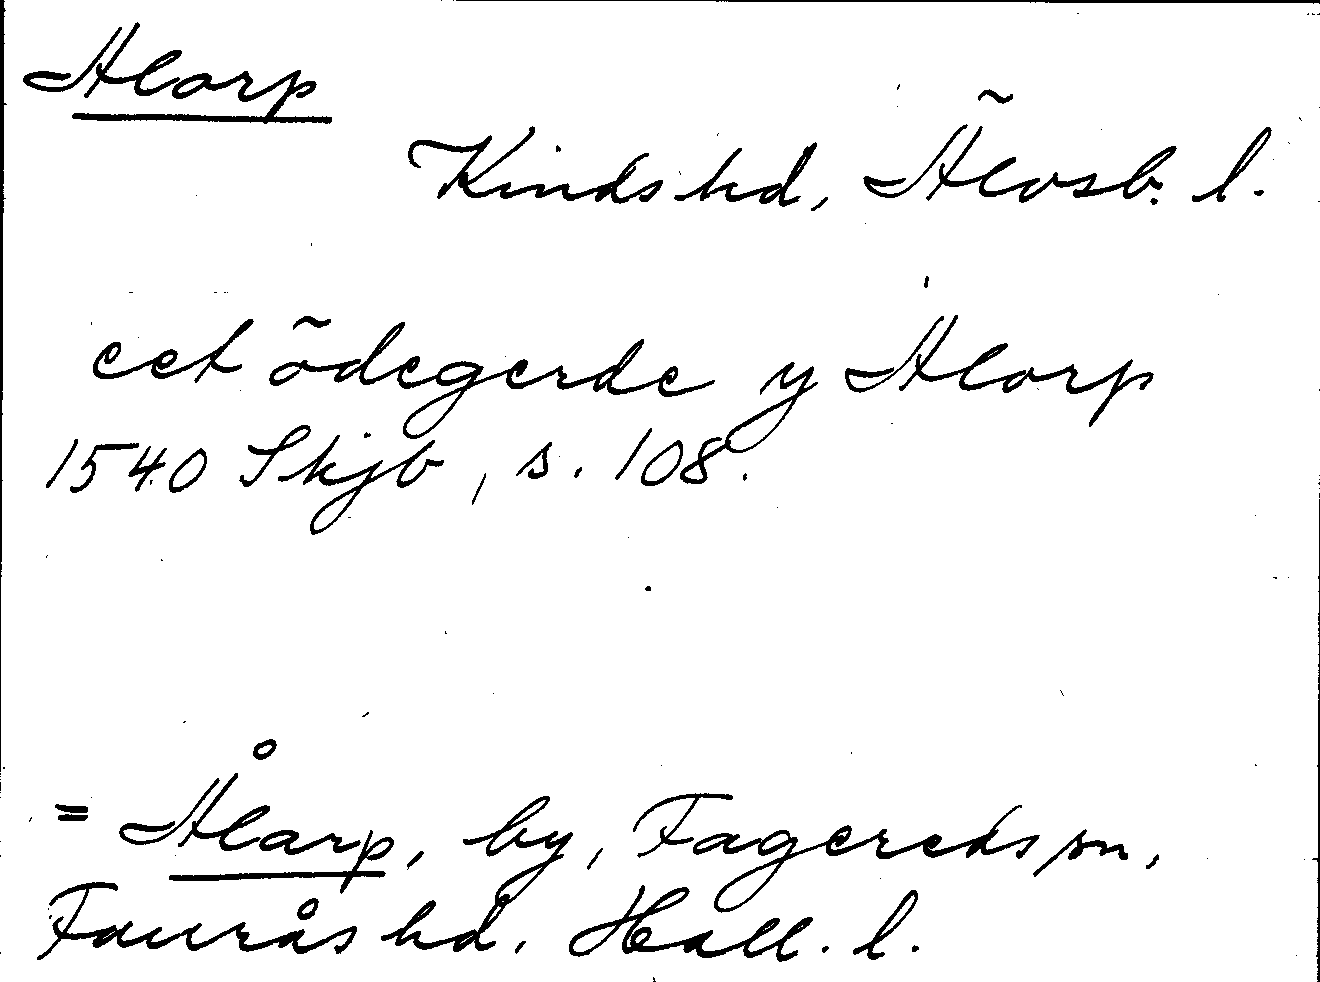 Alorp
Kinds hd, Älvsb. l.
eet ödegerde y Alorp
1540 Skjb, s. 108.
= Ålarp, by, Fagereds sn,
Faurås hd. Hall. l.